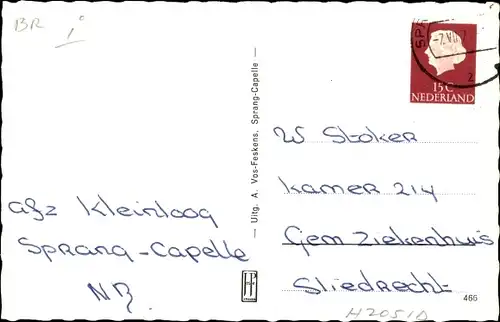 BR i
SPR
-7.VII.
2
15 C
NEDERLAND
W Stoker
Kamer 214
Gem Ziekenhuis
Sliedrecht
afz Kleinloog
Sprang-Capelle
N.B.
— Uitg. A. Vos-Feskens, Sprang-Capelle —
466
H2051D